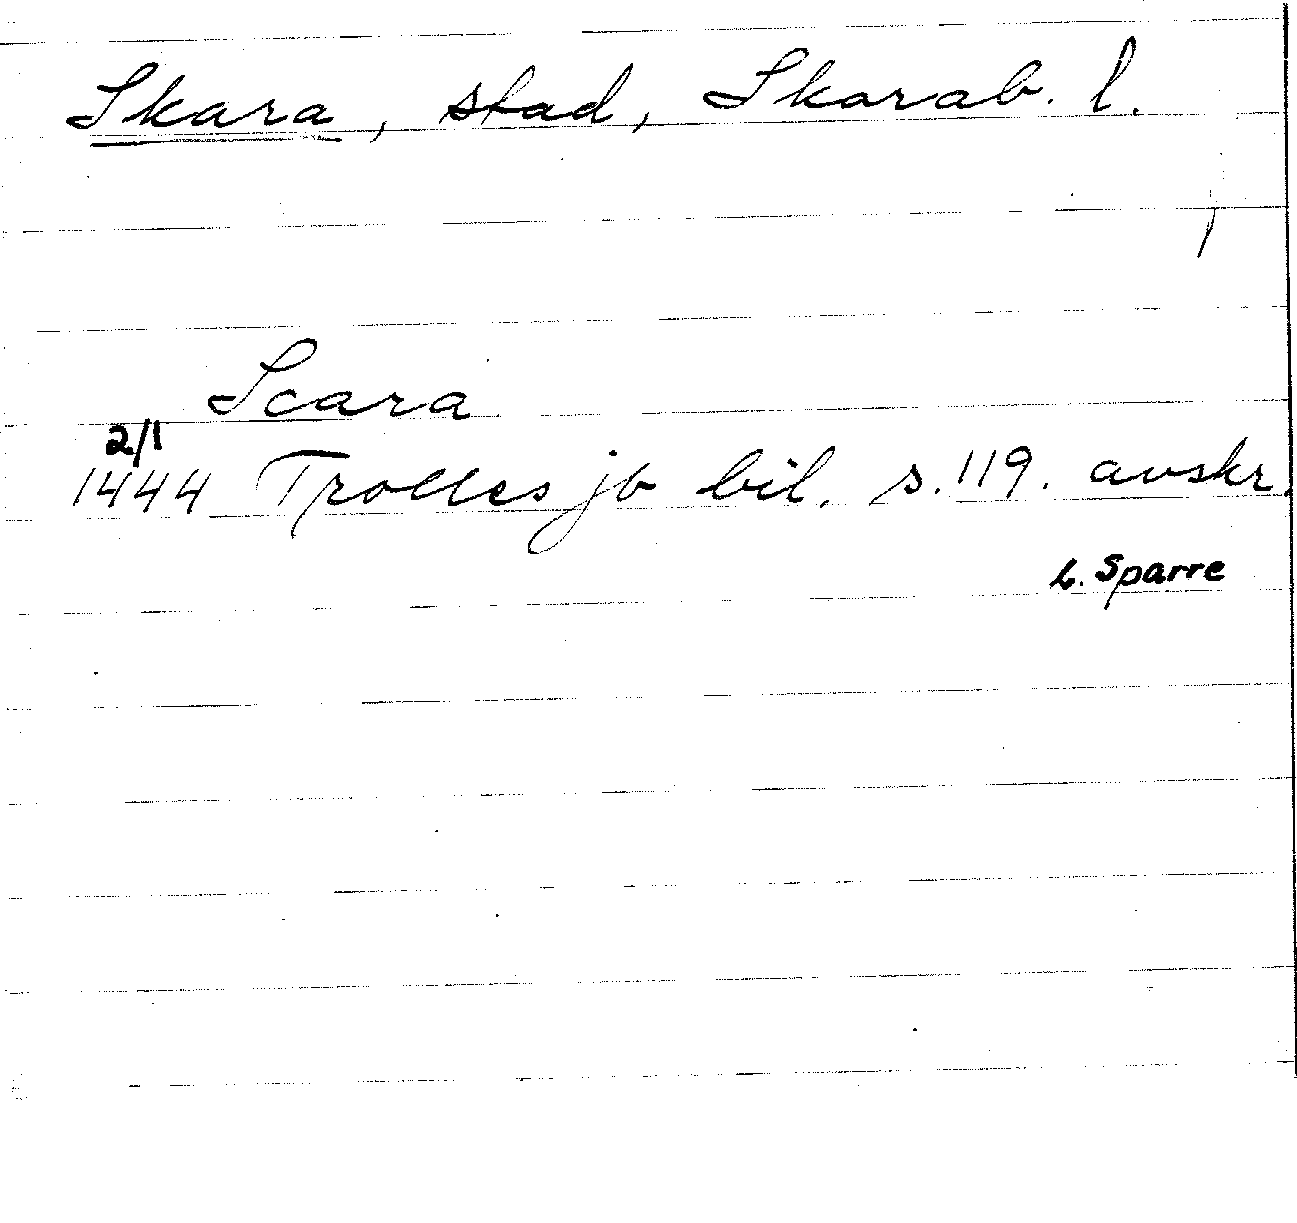 Skara, stad, Skarab. l.
Scara
2/1
1444 Trolles jb bil. s. 119. avskr.
L. Sparre